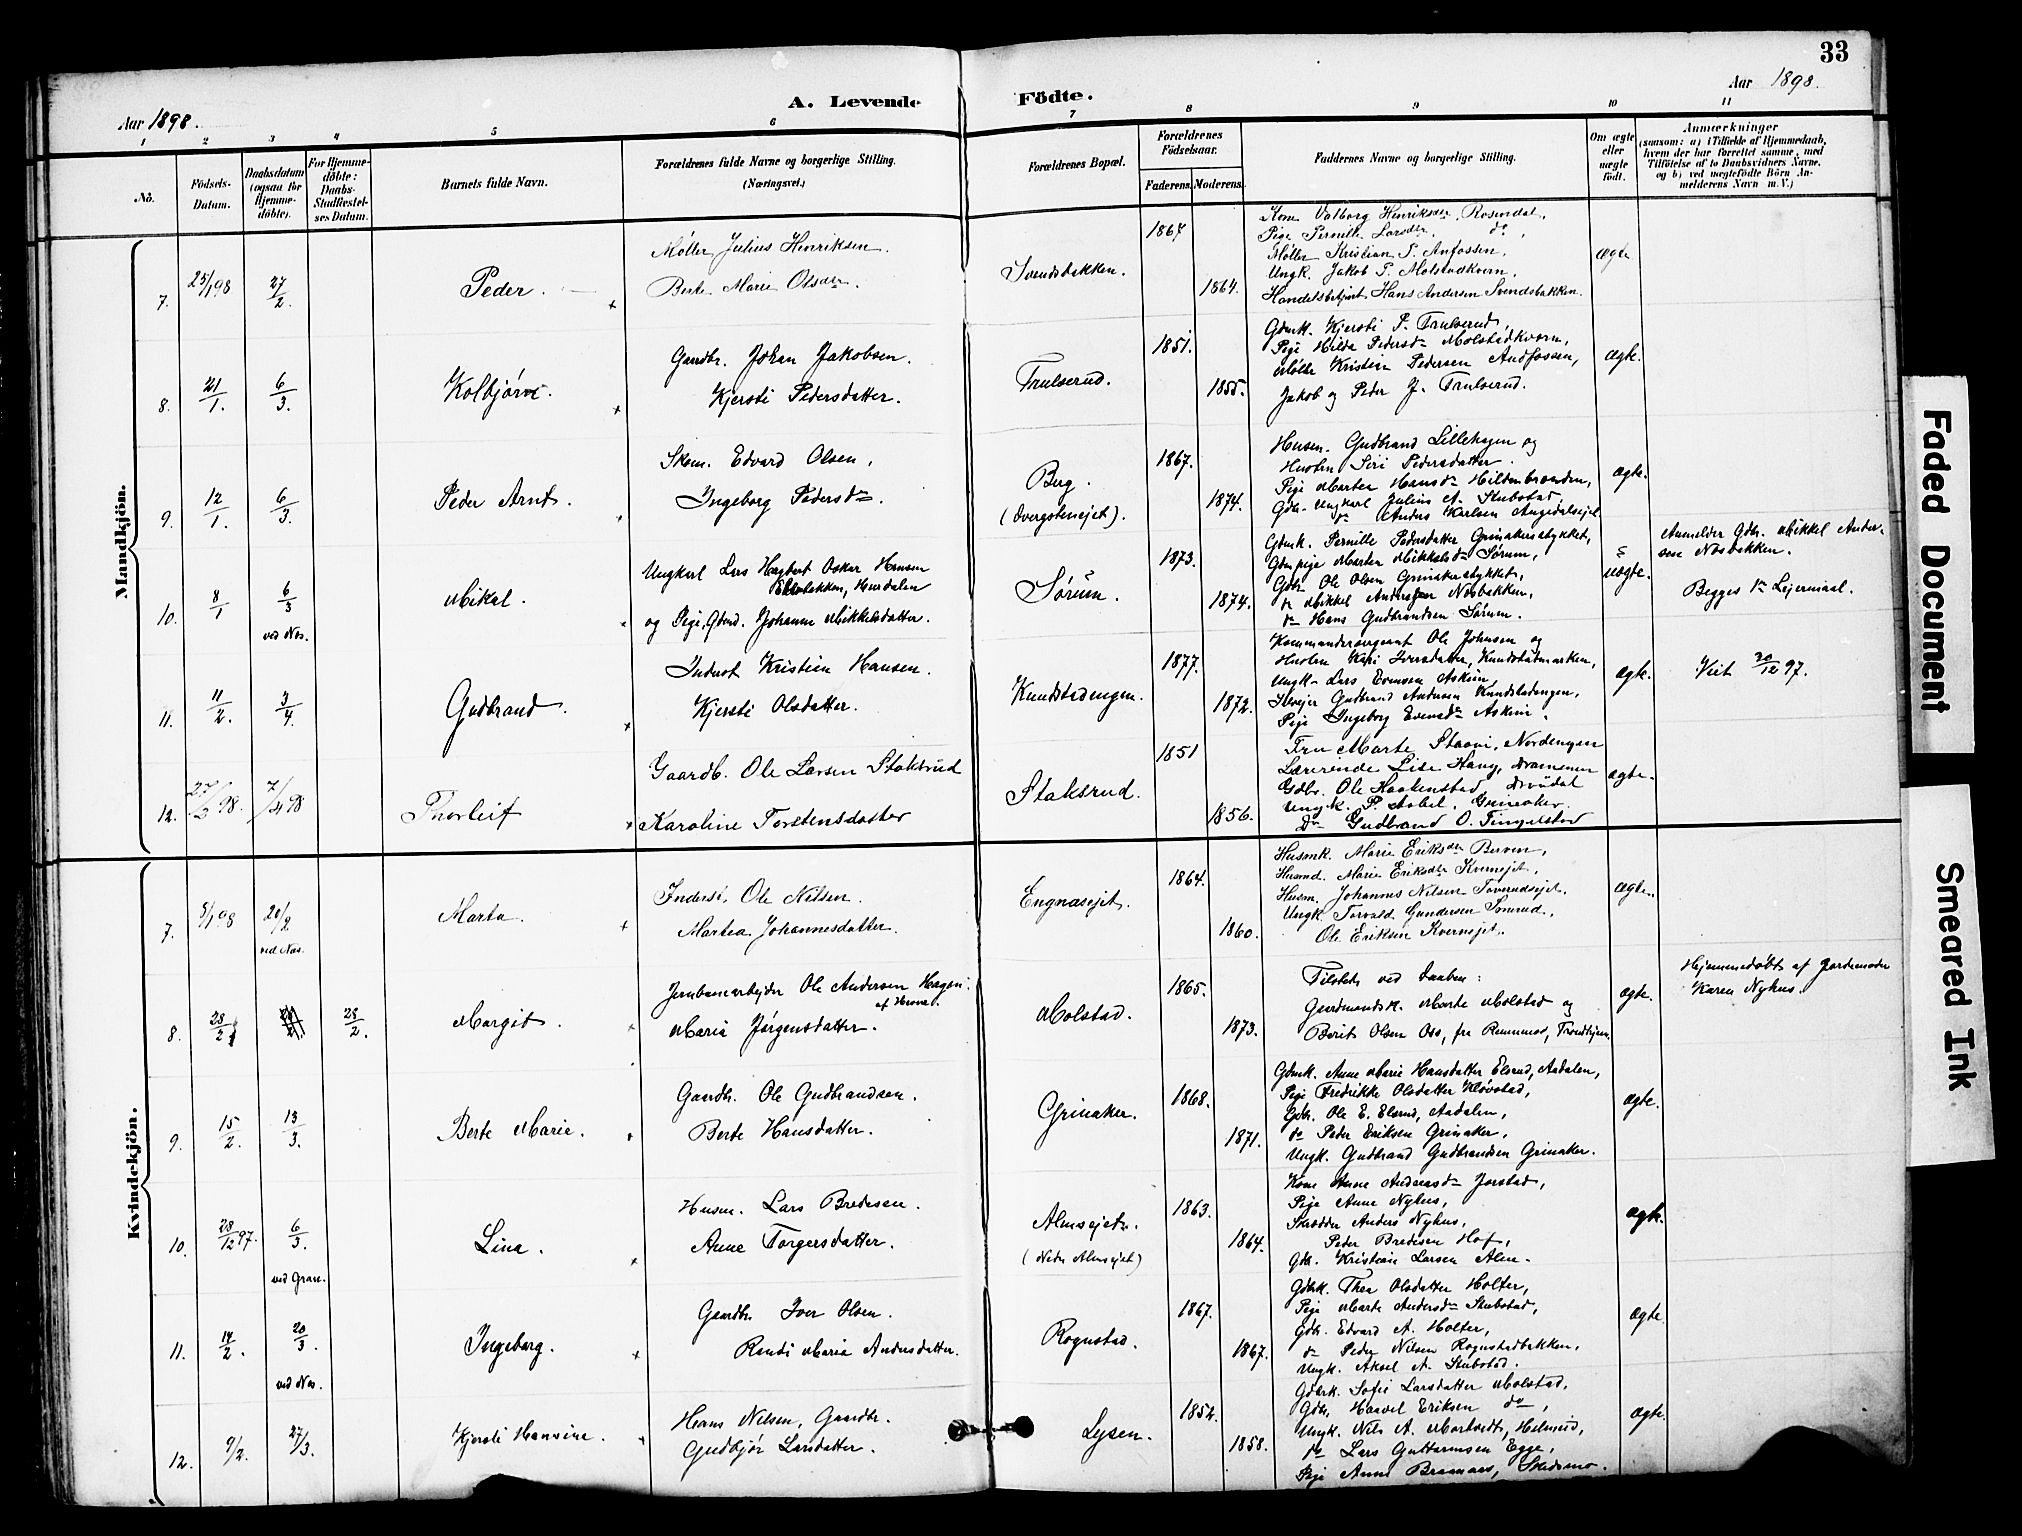 33
Aar 1898.
A. Levende Födte.
Aar 1898.
1 2 3 4 5 6 7 8 9 10 11
No.
Födsels-Datum.
Daabsdatum (ogsaa for Hjemme-döbte).
For Hjemme-döbte: Daabs-Stadfestel-ses Datum.
Barnets fulde Navn.
Forældrenes fulde Navne og borgerlige Stilling. (Næringsvei.)
Forældrenes Bopæl.
Forældrenes Födselsaar.
Faderens. Moderens.
Faddernes Navne og borgerlige Stilling.
Om ægte eller uægte födt.
Anmærkninger
(saasom: a) i Tilfælde af Hjemmedaab, hvem der har forrettet samme, med Tilföielse af to Daabsvidners Navne. og b) ved uægtefödte Börn An-melderens Navn m. V.)
Mandkjön.
7. 25/1 98 27/2. Peder.
Møller Julius Henriksen.
Berte Marie Olsdr.
Svendsbakken.
1867
1864.
Kone Valborg Henriksdr. Rosendal,
Pige Pernille Larsdr. do,
Møller Kristian P. Anfossen,
Ungk. Jakob P. Molstadkvern,
Handelsbetjent Hans Andersen Svendsbakken.
ægte
8. 21/1. 6/3. Kolbjørn.
Gaardbr. Johan Jakobsen.
Kjersti Pedersdatter.
Trulserud.
1851.
1855.
Gdmk. Kjersti P. Trulserud,
Pige Hilda Pedersdr Molstadkvern,
Møller Kristian Pedersen Andfossen,
Jakob og Peder J. Trulserud.
ægte.
9. 12/1. 6/3. Peder Arnt.
Skom. Edvard Olsen,
Ingeborg Pedersdr.
Berg.
1867.
1874.
Husm. Gudbrand Lillehagen og
Hustru Siri Pedersdatter.
Pige Marthea Hansdr Hildenbranden,
Gdb. Ungkarl Julius A. Skubstad,
do Anders Karlsen
ægte.
10. 8/1 6/3 ved Nes. Mikal.
Ungkarl Lars Hagbert Oskar Hansen
Hurdalen
og Pige, Gbrd. Johanne Mikkelsdatter.
Sørum.
1873.
1874.
Gdmk. Pernille Pedersdatter Grinakerstykket,
Gdm pige Marthea Mikkelsdr Sørum,
Gdb. Ole Olsen Grinakerstykket,
do Mikkel Andersen Nesbakken,
do Hans Gudbrandsen Sørum.
uægte.
Anmelder Gdbr. Mikkel Ander-
sen Nesbakken.
Begges 1ste Leiermaal.
11. 11/2. 3/4. Gudbrand.
Inderst Kristian Hansen.
Kjersti Olsdatter.
Knudstadengen.
1877.
1872.
Kommandersergeant Ole Johnsen og
Hustru Kari Iversdatter, Knudstadmarken,
Ungk. Lars Evensen Askim,
Selveier Gudbrand Andersen Knudstadengen,
Pige Ingeborg Evensdr Askim.
ægte.
Viet 30/12 97.
12. 27/2 98. 7/4 98 Thorleif
Gaardb. Ole Larsen Staksrud
Karoline Torstensdatter
Staksrud.
1851
1856.
Fru Marte Staxvi, Nordengen
Lærerinde Lise Haug, Drammen
Gdbr. Ole Haakenstad
Ungk. P. Aabel, Grinaker.
Do Gudbrand O. Tingelstad
ægte.
Kvindekjön.
7. 5/1 98 20/2 ved Nes. Marta.
Inderst Ole Nilsen.
Martea Johannesdatter.
Engnaseiet.
1864.
1860.
Husmk. Marie Eriksdr Berven,
Husmd. Marie Eriksdr Kverneiet,
Husm. Johannes Nilsen
Ungk. Torvald Gundersen
Ole Eriksen Kverneiet.
ægte.
8. 28/2 28/2. Margit.
Jernbanearbeider Ole Andersen Hagen.
Maria Jørgensdatter.
Molstad.
1865.
1873.
Tilstede ved Daaben:
Gaardmandsk. Marte Molstad og
Berit Olsen Oss, fra Trondhjem.
ægte.
Hjemmedøbt af Jordemoder
Karen Nyhus.
9. 15/2. 13/3. Berte Marie.
Gaardbr. Ole Gudbrandsen.
Berte Hansdatter.
Grinaker.
1868.
1871.
Gdmk. Anne Marie Hansdatter Elsrud, Aadalen,
Pige Fredrikke Olsdatter Kløvstad,
Gdb. Ole E. Elsrud, Aadalen,
do Peder Eriksen Grinaker,
Ungk. Gudbrand Gudbrandsen Grinaker.
ægte.
10. 28/12 97. 6/3. ved Gran. Lina.
Husm. Lars Bredesen.
Anne Torgersdatter.
Almseiet.
(Nedre Almseiet)
1863.
1864.
Kone Anne Andersdr Jorstad,
Pige Anne Nyhus,
Skredder Anders Nyhus,
Peder Bredesen Hof,
Gdb. Kristian Larsen Alm.
ægte.
11. 14/2. 20/3. ved Nes. Ingeborg.
Gaardbr Iver Olsen.
Randi Maria Andersdatter.
Rognstad.
1867.
1867.
Gdbrk. Thea Olsdatter Holter,
Pige Marte Andersdr Skubstad,
Gdb. Edvard A. Holter,
do Peder Nilsen Rognstadbakken,
Ungk. Aksel A. Skubstad.
ægte
12. 9/2. 27/3. Kjersti Hansine.
Hans Nilsen, Gaardbr.
Gudbjør Larsdatter.
Lysen.
1852.
1858.
Gdbrk. Sofie Larsdatter Molstad,
Gdb. Haavel Eriksen do,
Ungk. Nils A.
do Lars Guttormsen Egge,
Pige Anne
ægte.
Faded Document
Smeared Ink